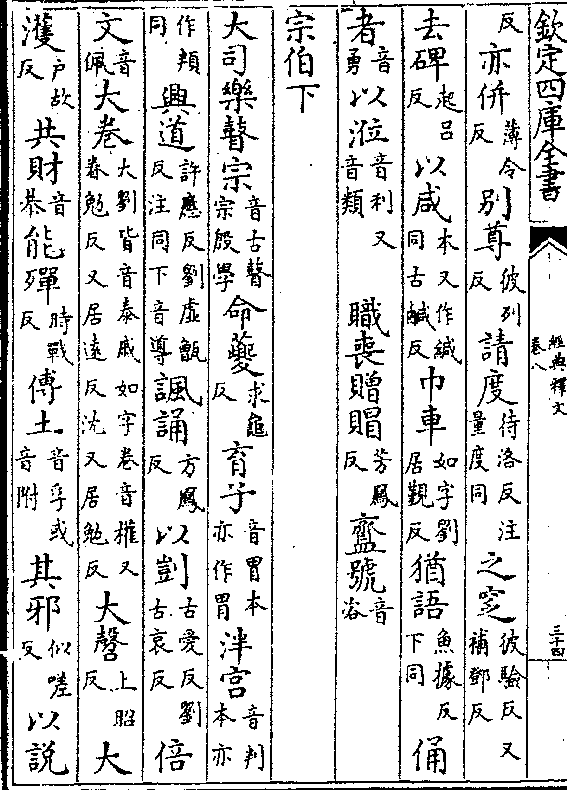 欽定四庫全書
經典釋文
卷八
三十四
反亦併薄令反別尊彼列反請度待洛反注量度同之窆彼驗反又補鄧反
去碑起呂反以咸本又作緘同古鹹反巾車如字劉居覲反猶語魚據反下同俑
者音勇以涖音利又音類職喪贈賵芳鳳反齍號音咨
宗伯下
大司樂瞽宗音古瞽宗殷學命夔求龜反育子音胃本亦作胃泮宮音判本亦
作頖同興道許應反劉虛甑反注同下音導諷誦方鳳反以剴古愛反劉古哀反倍
文音佩大卷大劉皆音泰戚如字卷音權又眷勉反又居遠反沈又居勉反大㲈上昭反大
濩户故反共財音恭能殫時戰反傅土音孚或音附其邪似嗟反以說